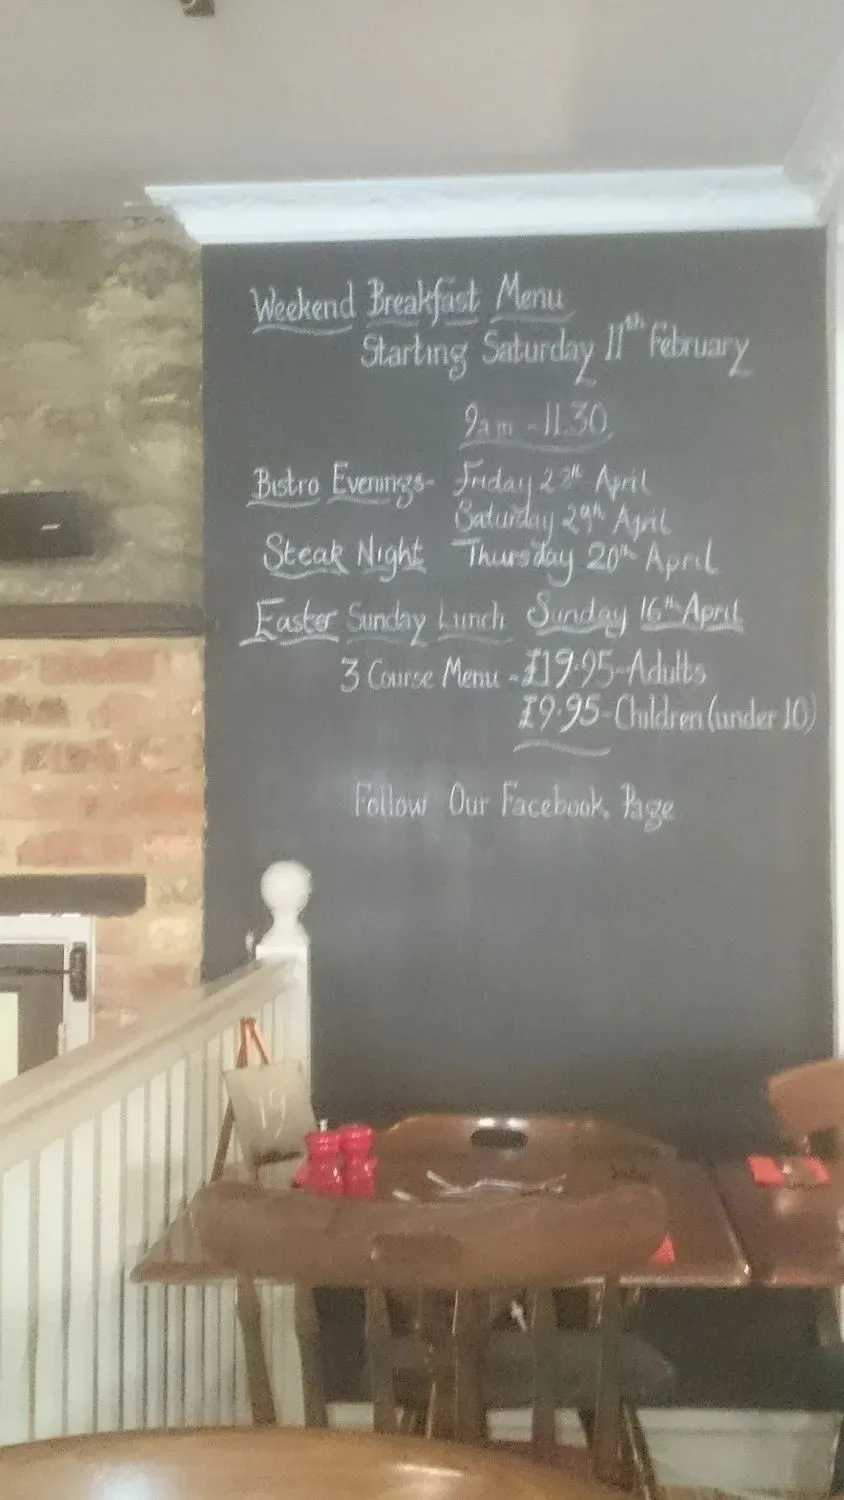 Weekend Breakfast Menu
Starting Saturday 11th February
9am - 11.30
Bistro Evenings- Friday 28th April
Saturday 29th April
Steak Night Thursday 20th April
Easter Sunday Lunch Sunday 16th April
3 Course Menu - £19.95-Adults
£9.95-Children (under 10)
Follow Our Facebook Page
19